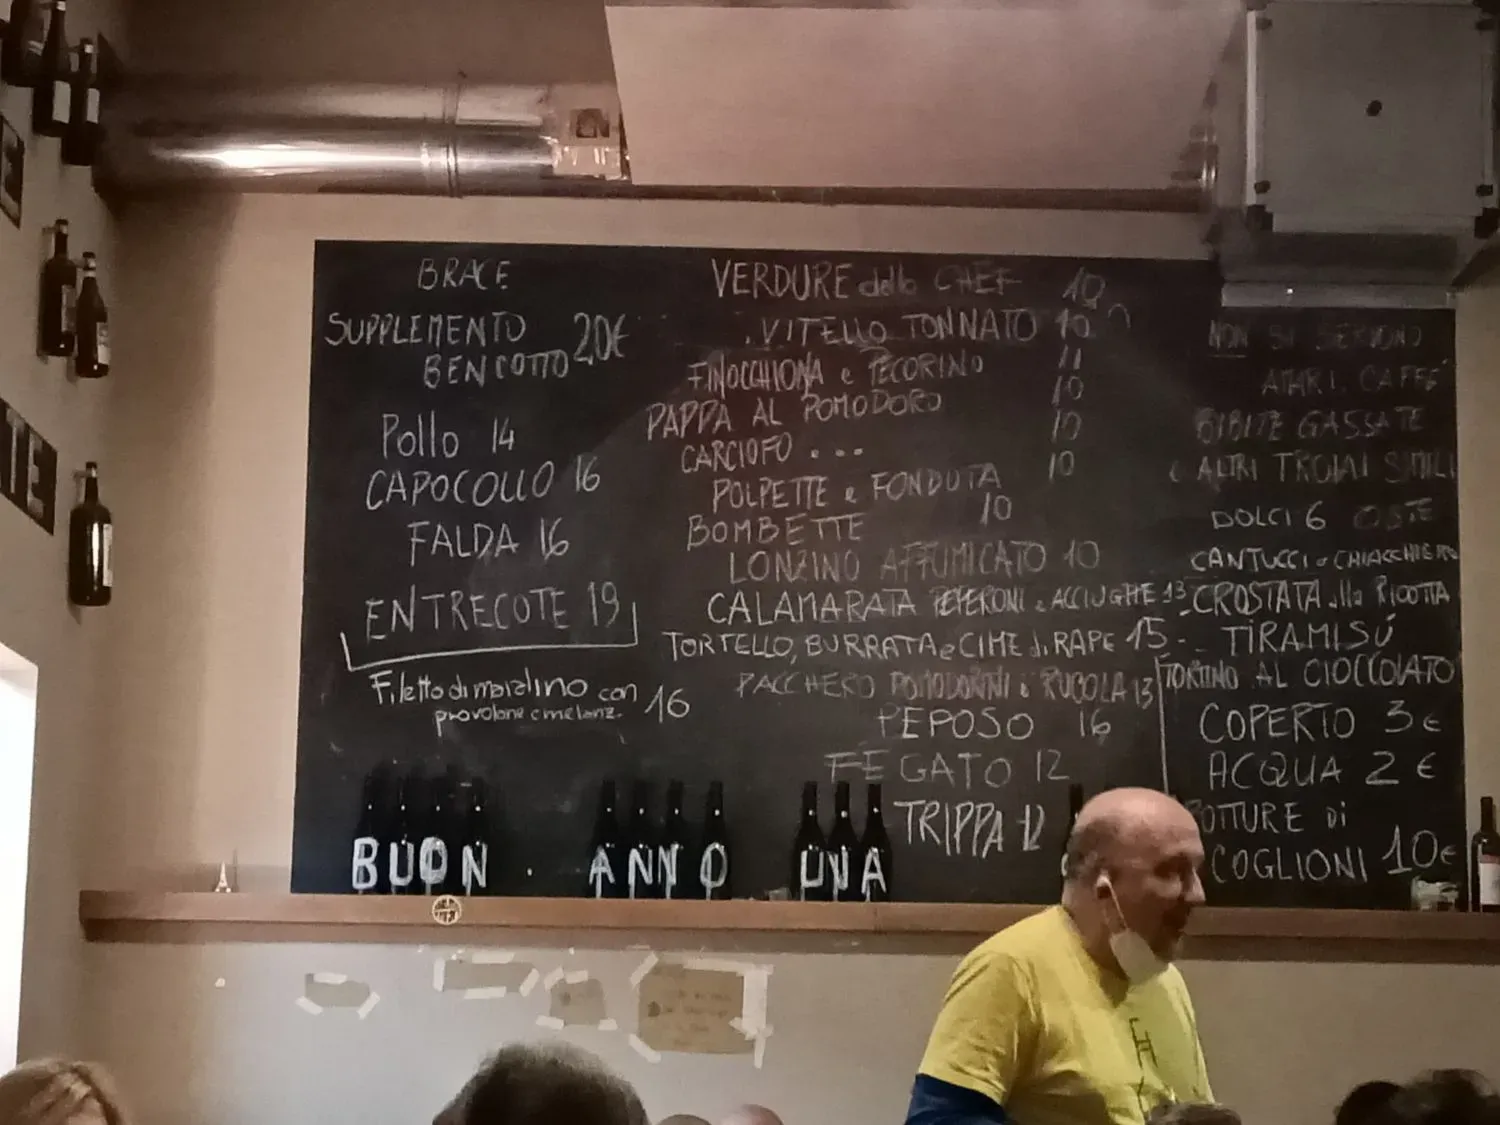 BRACE
SUPPLEMENTO 20€
BEN COTTO
Pollo 14
CAPOCOLLO 16
FALDA 16
ENTRECOTE 19
Filetto di maialino con 16
provolone e melanz.
VERDURE dello CHEF 10
VITELLO TONNATO 10
FINOCCHIONA e PECORINO 11
PAPPA AL POMODORO 10
CARCIOFO ... 10
POLPETTE e FONDUTA 10
BOMBETTE 10
LONZINO AFFUMICATO 10
CALAMARATA PEPERONI e ACCIUGHE 13
TORTELLO, BURRATA e CIME di RAPE 15
PACCHERO POMODORINI e RUCOLA 13
PEPOSO 16
FEGATO 12
TRIPPA 12
NON SI SERVONO
AMARI, CAFFÈ
BIBITE GASSATE
e ALTRI TROIAI SIMILI
DOLCI 6
CANTUCCI e
CROSTATA alla RICOTTA
TIRAMISÚ
TORTINO AL CIOCCOLATO
COPERTO 3€
ACQUA 2€
ROTTURE DI
COGLIONI 10€
BUON . ANNO UVA